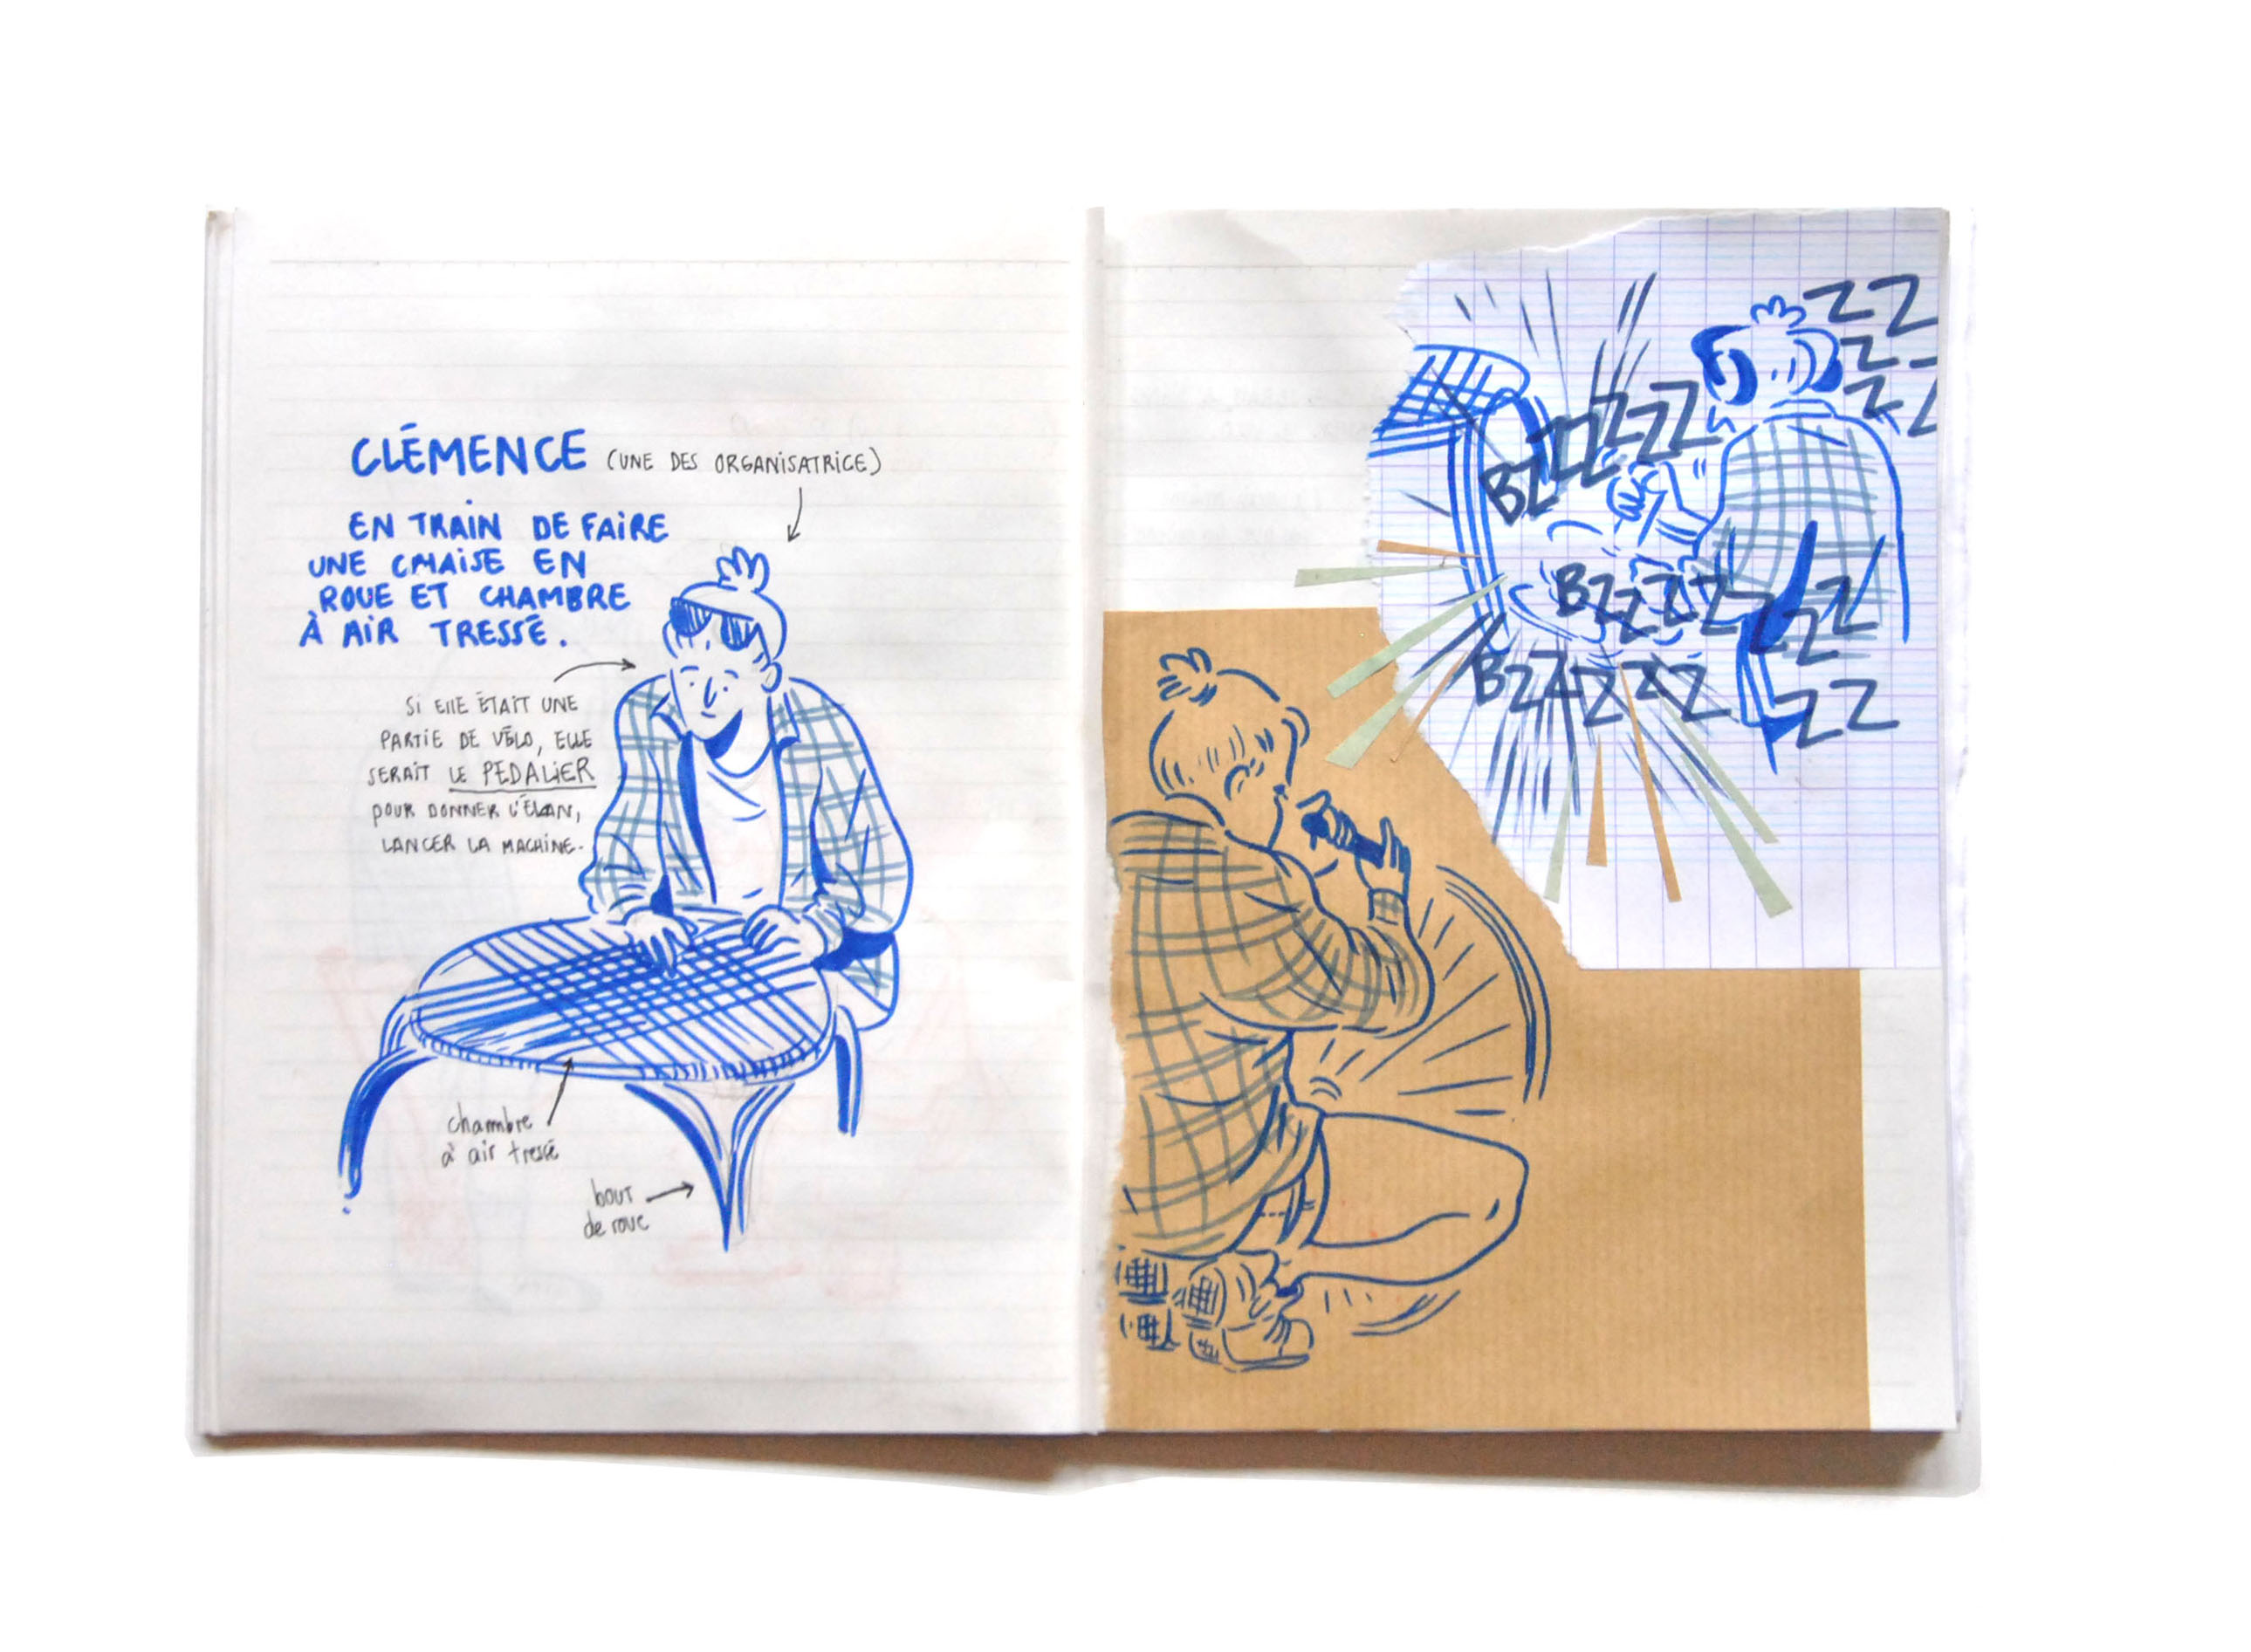 CLÉMENCE (UNE DES ORGANISATRICE)
EN TRAIN DE FAIRE
UNE CHAISE EN
ROUE ET CHAMBRE
À AIR TRESSÉ.
SI ELLE ÉTAIT UNE
PARTIE DE VÉLO, ELLE
SERAIT LE PEDALIER
POUR DONNER L'ÉLAN,
LANCER LA MACHINE.
chambre
à air tressé
bout
de roue
ZZ
ZZ
ZZ
BZZZZZZ
BZZZZZZZ
BZZZZZZ
ZZ